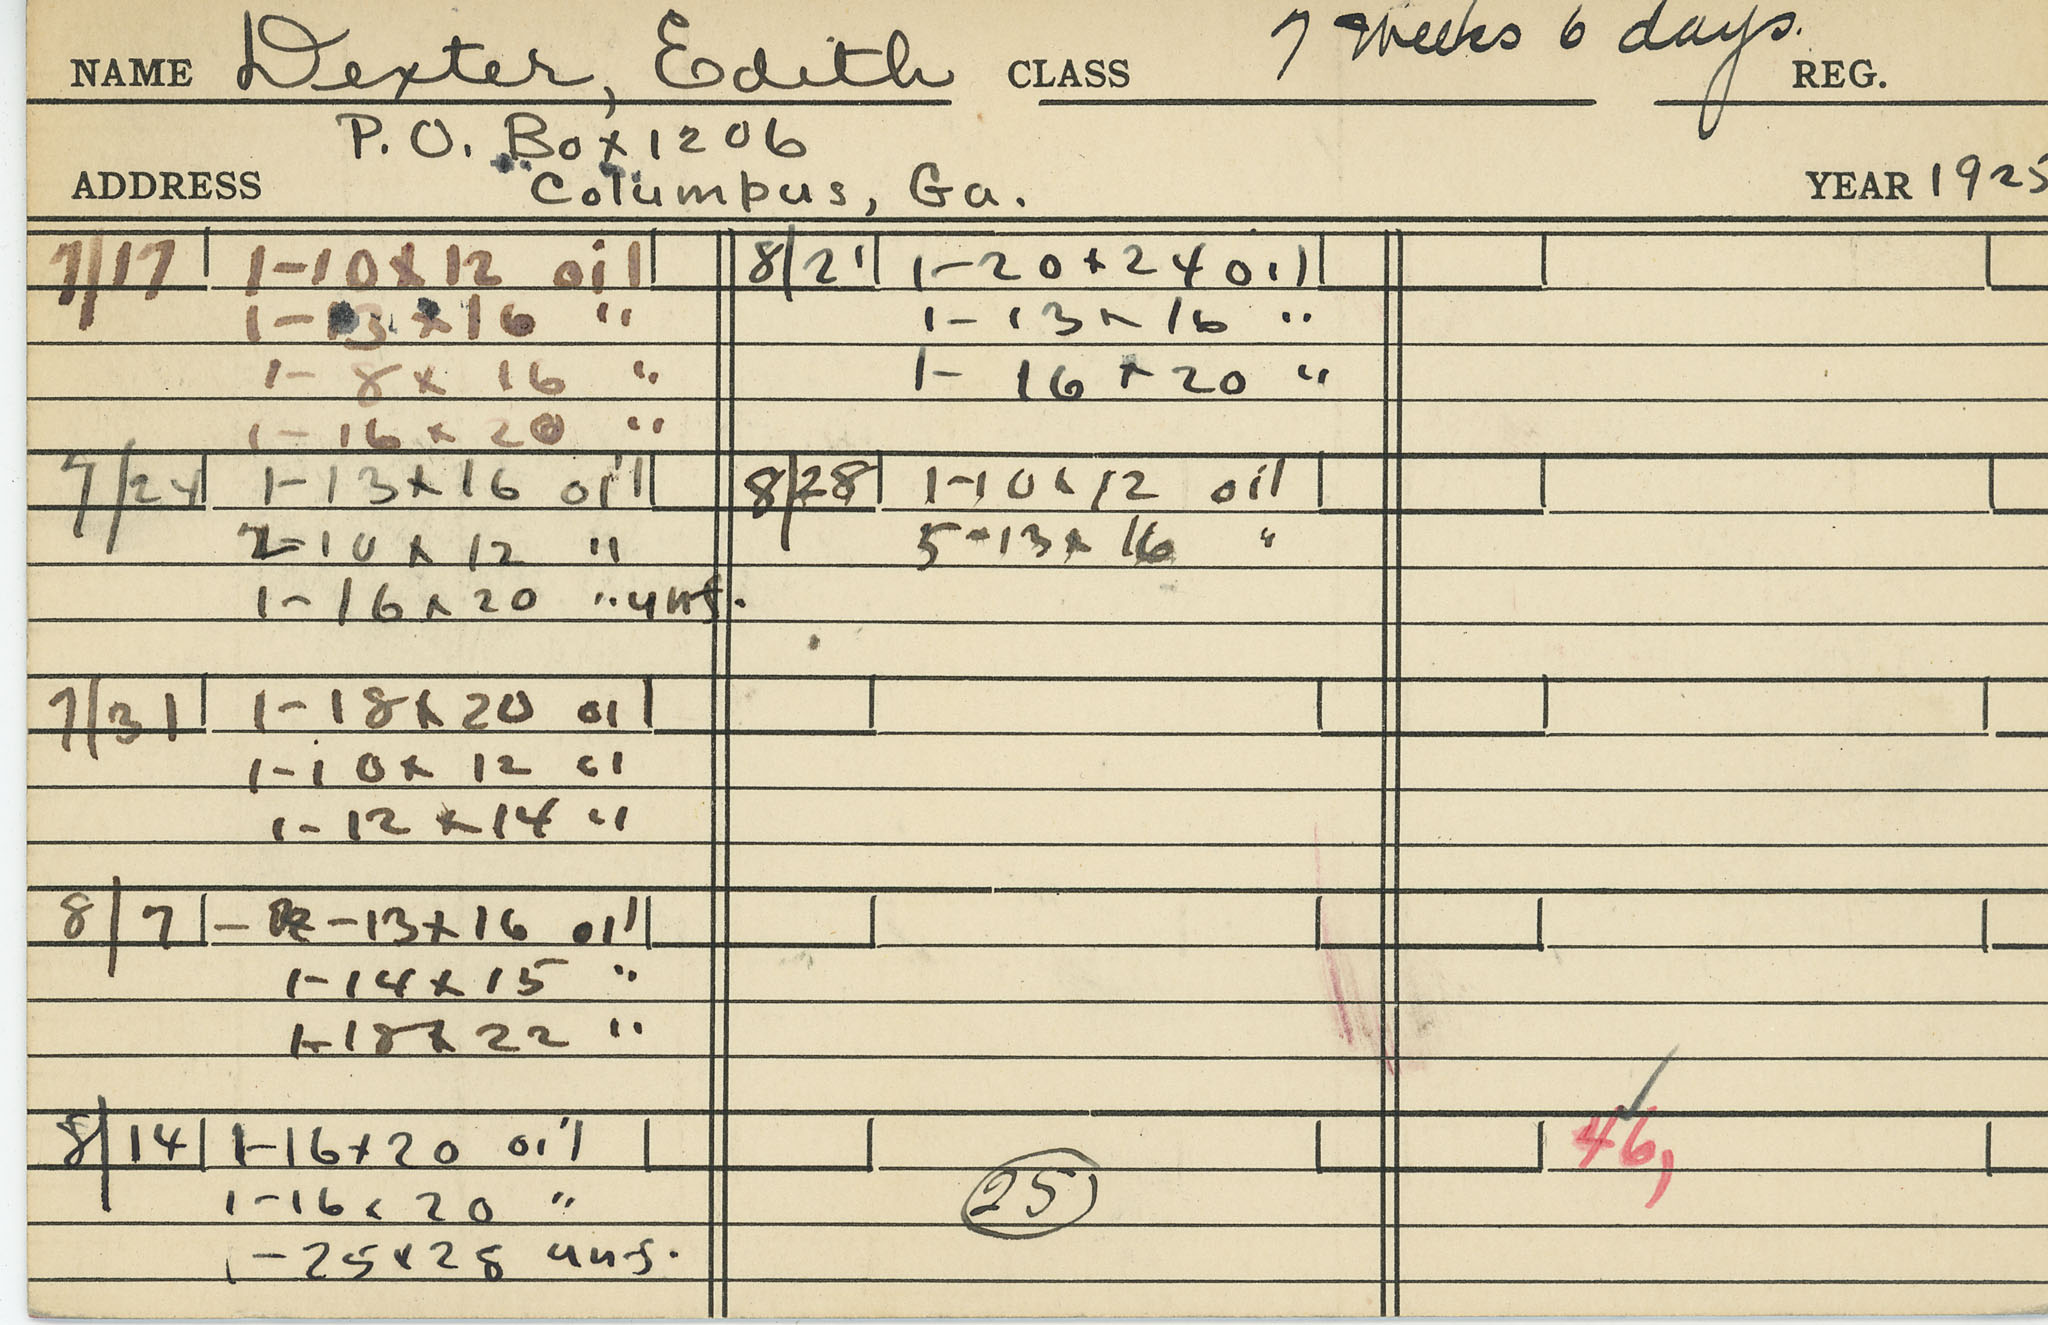 7 Weeks 6 days.
NAME Dexter, Edith CLASS REG.
P.O. Box 1206
ADDRESS Columbus, Ga. YEAR 1925
7/17 1-10x12 oil
1-13x16 "
1-8x16 "
1-16x20 "
7/24 1-13x16 oil
2-10x12 "
1-16x20 " uns.
7/31 1-18x20 oil
1-10x12 "
1-12x14 "
8/7 -13x16 oil
1-14x15 "
1-18x22 "
8/14 1-16x20 oil
1-16x20 "
1-25x28 uns.
8/21 1-20x24 oil
1-13x16 "
1-16x20 "
8/28 1-10x12 oil
5-13x16 "
25
46,